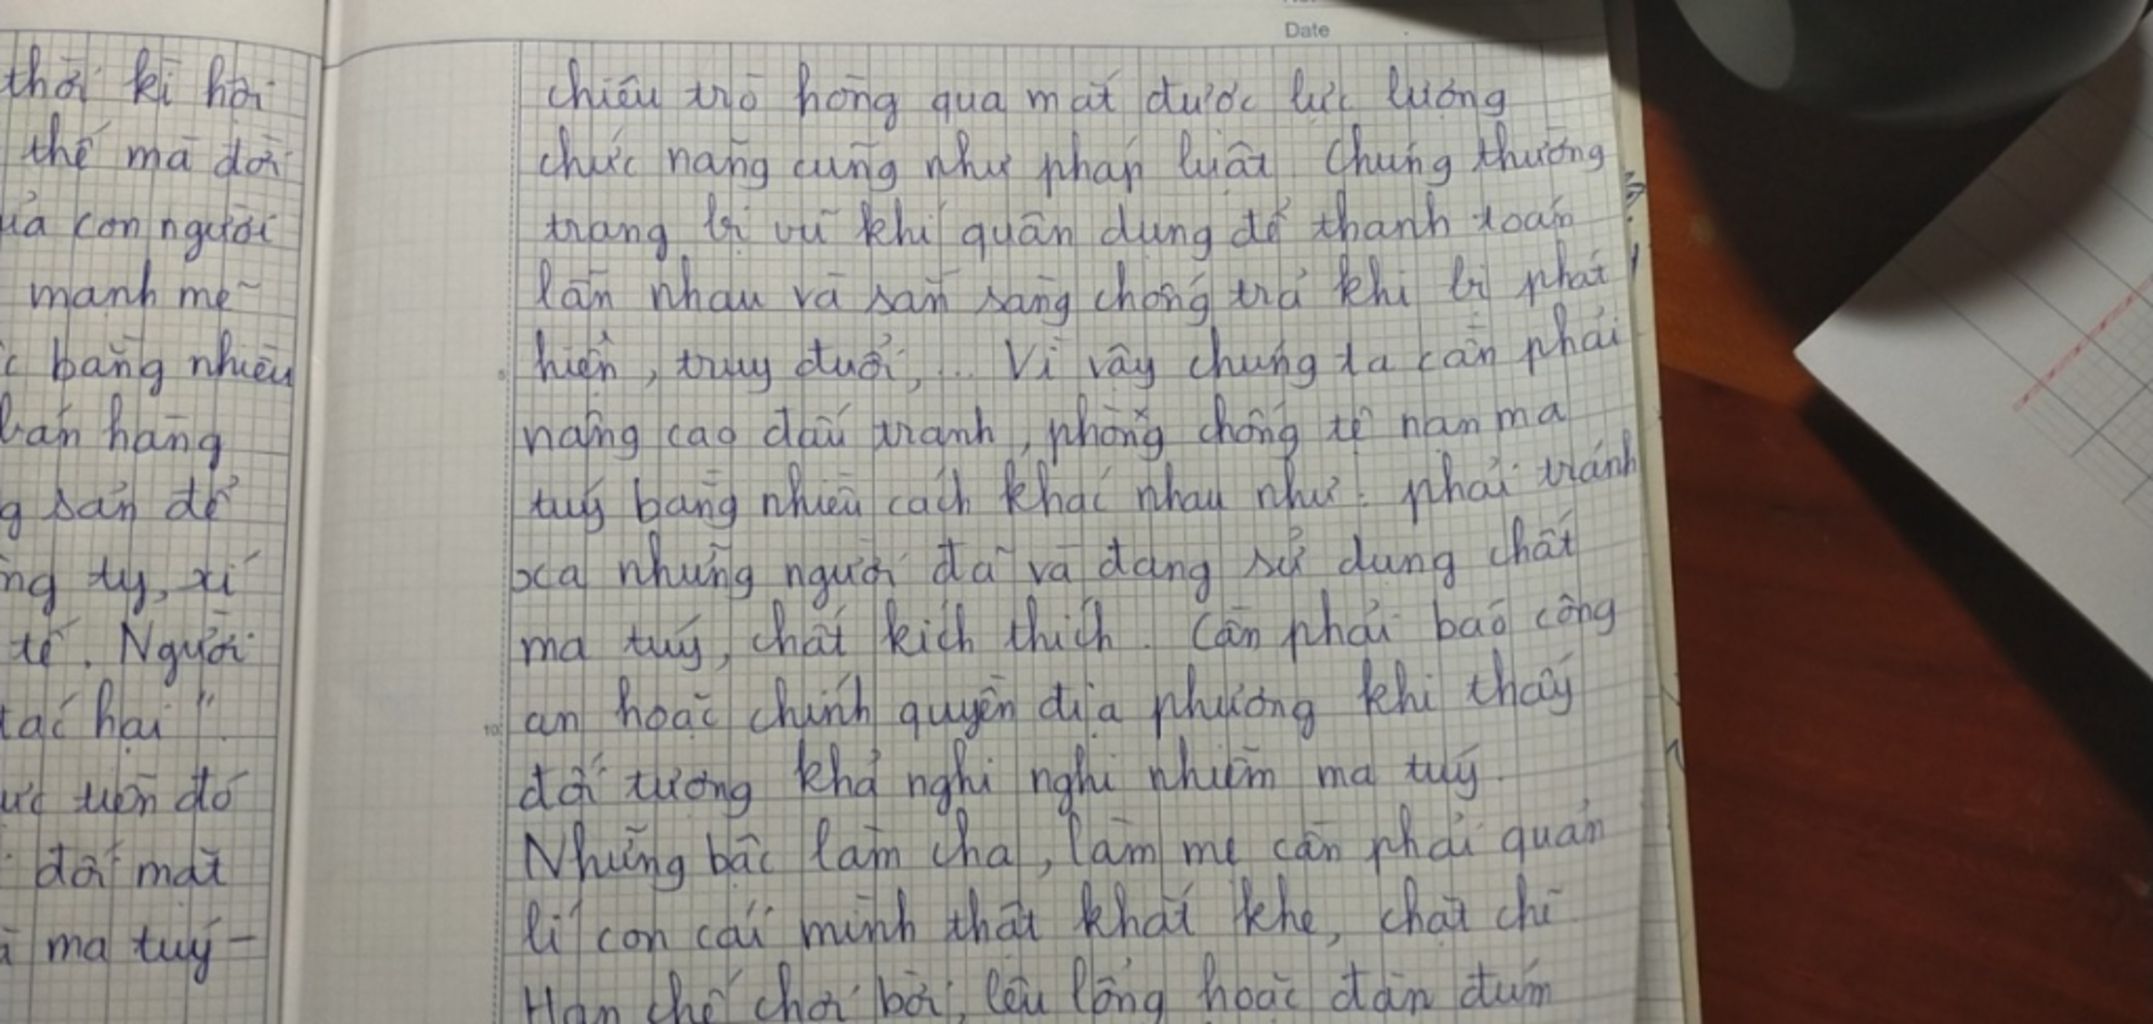 Date
thời kì hội
thế mà đời
của con người
mạnh mẽ
bằng nhiều
bán hàng
sản để
ty, xí
tế. Người
tác hại".
tiễn đó
đối mặt
ma tuý -
chiêu trò hòng qua mắt được lực lượng
chức năng cũng như pháp luật. Chúng thường
trang bị vũ khí quân dụng để thanh toán
lẫn nhau và sẵn sàng chống trả khi bị phát
hiện, truy đuổi,... Vì vậy chúng ta cần phải
nâng cao đấu tranh, phòng chống tệ nạn ma
tuý bằng nhiều cách khác nhau như: phải tránh
xa những người đã và đang sử dụng chất
ma tuý, chất kích thích. Cần phải báo công
an hoặc chính quyền địa phương khi thấy
đối tượng khả nghi nghi nhiễm ma tuý.
Những bậc làm cha, làm mẹ cần phải quản
lí con cái mình thật khắt khe, chặt chẽ
Hạn chế chơi bời, lêu lổng hoặc đàn đúm